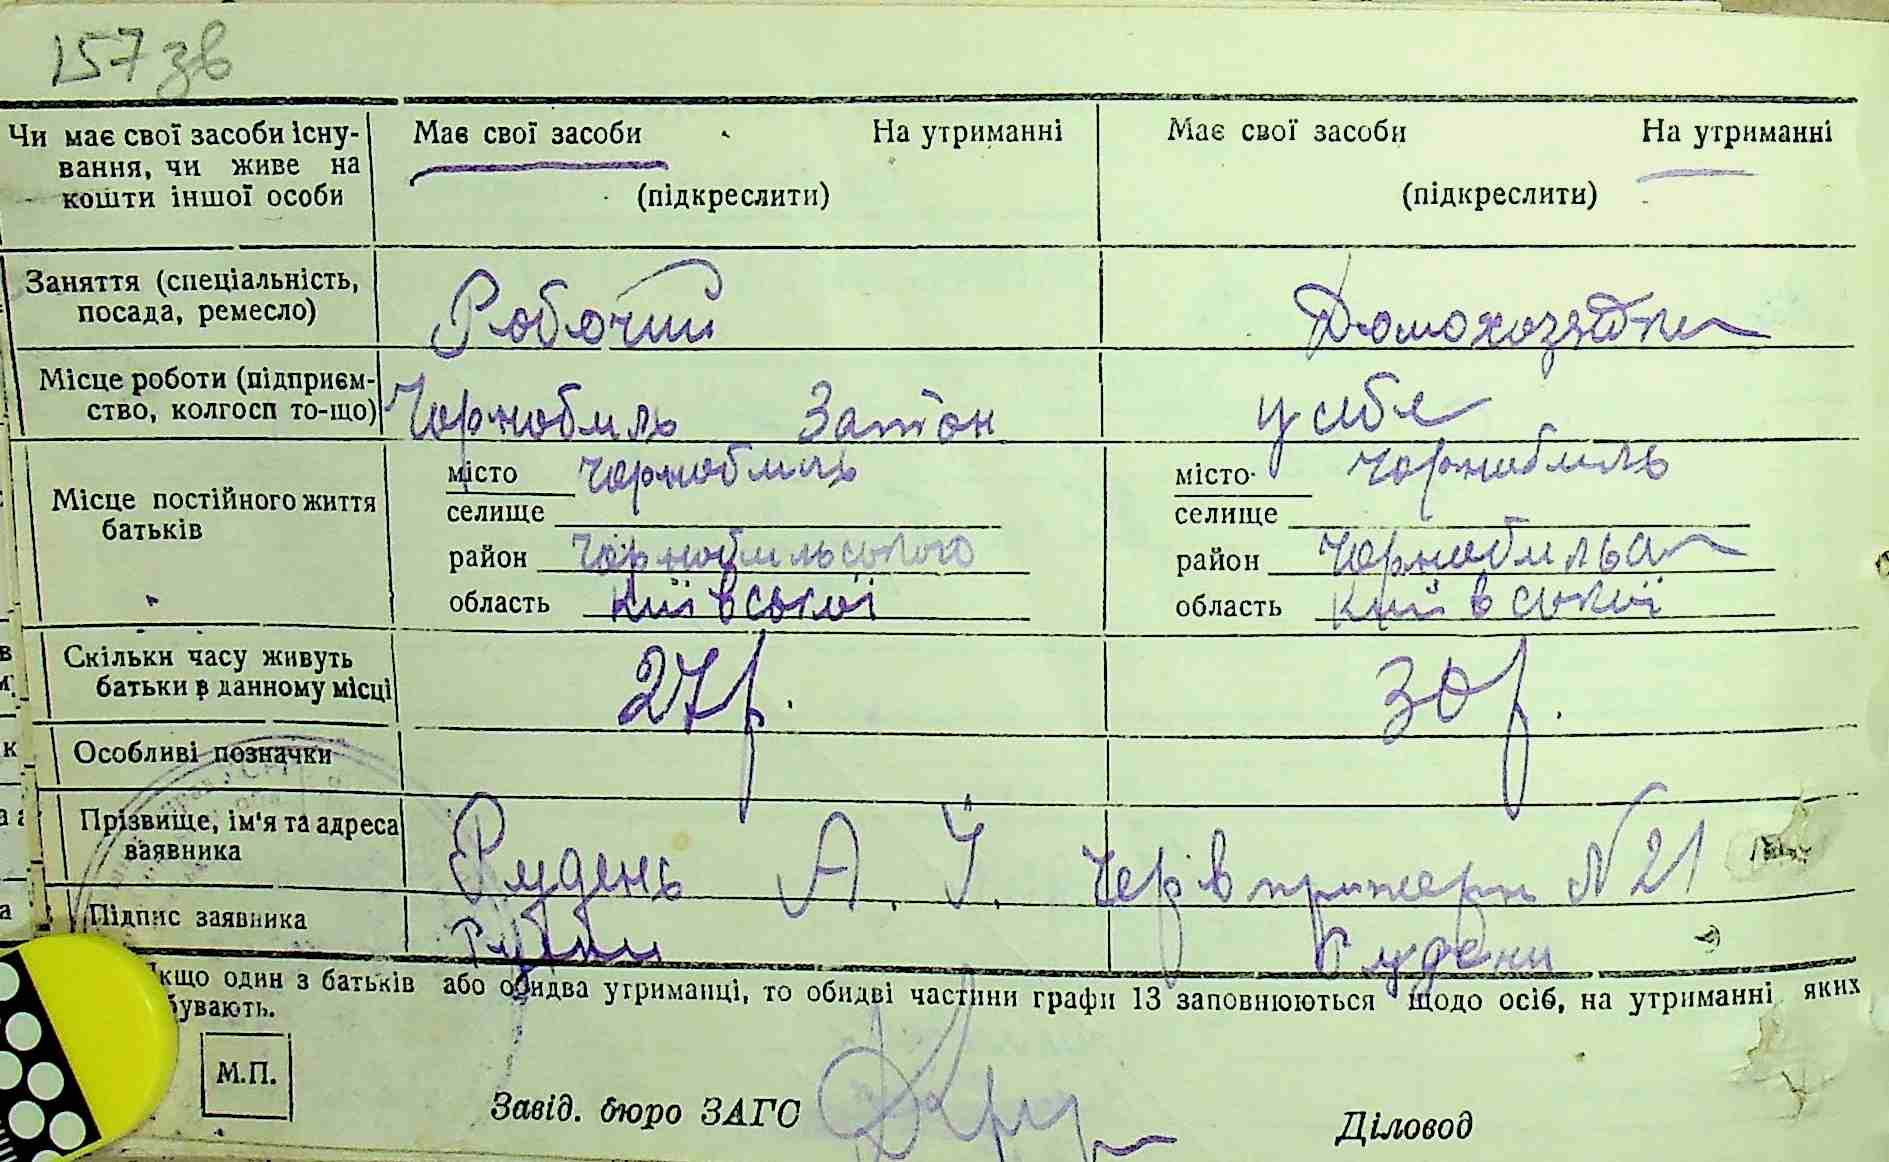 157 зв
Чи має свої засоби існу-
вання, чи живе на
кошти іншої особи
Має свої засоби На утриманні
(підкреслити)
Має свої засоби На утриманні
(підкреслити)
Заняття (спеціальність,
посада, ремесло)
Робочий
Домохозяйка
Місце роботи (підприєм-
ство, колгосп то-що)
Чорнобиль Затон
у себе
Місце постійного життя
батьків
місто Чорнобиль
селище
район Чорнобильського
область Київської
місто Чорнобиль
селище
район
область Київської
Скільки часу живуть
батьки в данному місці
27 р.
30 р.
Особливі позначки
Прізвище, ім'я та адреса
заявника
Рудень А. Й. №21
Підпис заявника
Якщо один з батьків або обидва утриманці, то обидві частини графи 13 заповнюються щодо осіб, на утриманні яких
М.П.
Завід. бюро ЗАГС
Діловод